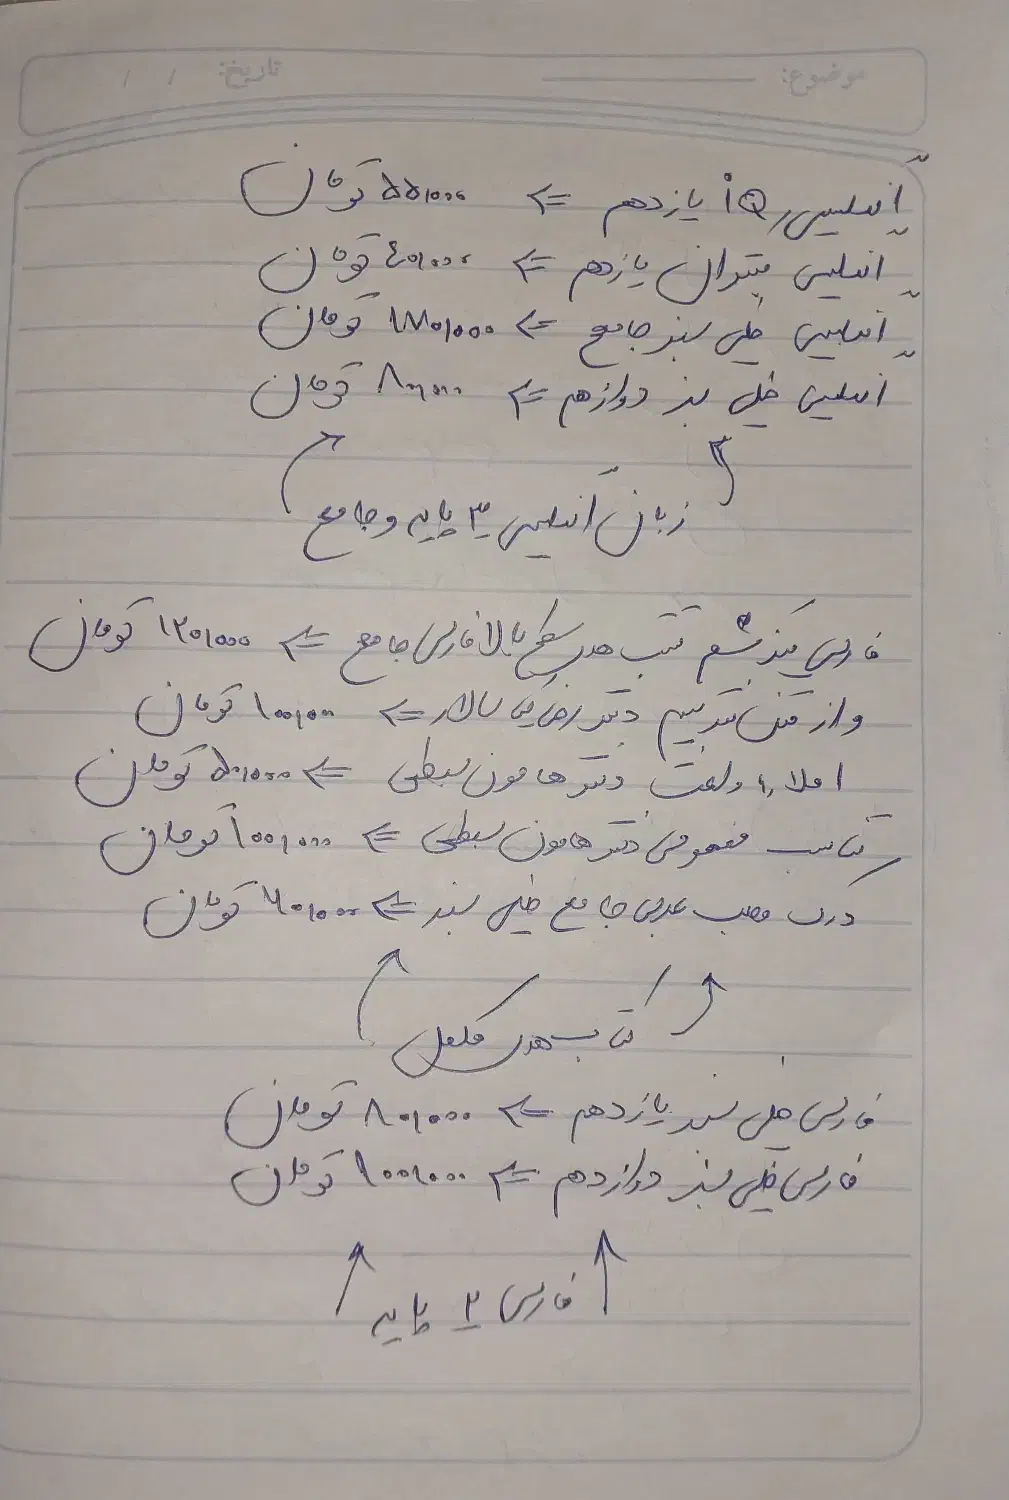 موضوع: تاریخ: / /
انگلیسی IQ یازدهم ⇐ ۵۵,۰۰۰ تومان
انگلیسی مبتکران یازدهم ⇐ ۴۰,۰۰۰ تومان
انگلیسی خیلی سبز جامع ⇐ ۱۸۰,۰۰۰ تومان
انگلیسی خیلی سبز دوازدهم ⇐ ۸۰,۰۰۰ تومان
زبان انگلیسی ۳ پایه و جامع
فارسی هفت کتاب های سطح بالا فارسی جامع ⇐ ۱۲۰,۰۰۰ تومان
واژ دکتر سالار ⇐ ۱۰۰,۰۰۰ تومان
املاء و لغت دکتر هامون سبطی ⇐ ۵۰,۰۰۰ تومان
کتاب مفهومی دکتر هامون سبطی ⇐ ۱۰۰,۰۰۰ تومان
درک مطلب عربی جامع خیلی سبز ⇐ ۷۰,۰۰۰ تومان
کتاب های مکمل
فارسی خیلی سبز یازدهم ⇐ ۸۰,۰۰۰ تومان
فارسی خیلی سبز دوازدهم ⇐ ۱۰۰,۰۰۰ تومان
فارسی ۲ پایه